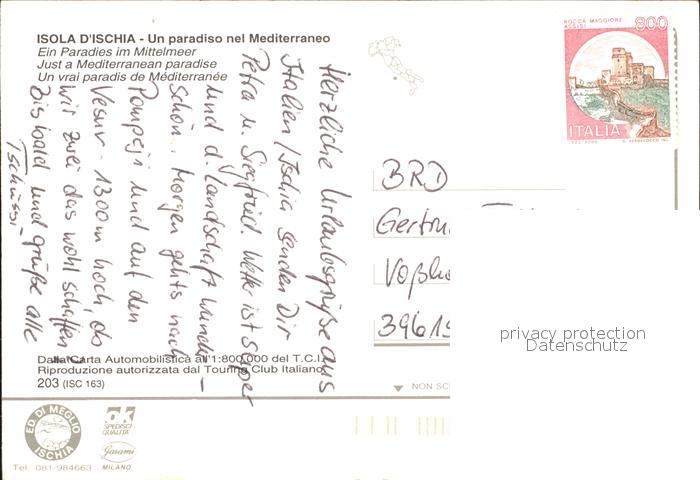 ISOLA D'ISCHIA - Un paradiso nel Mediterraneo
Ein Paradies im Mittelmeer
Just a Mediterranean paradise
Un vrai paradis de Méditerranée
ROCCA MAGGIORE
ASSISI
800
ITALIA
Herzliche Urlaubsgrüße aus
Italien/Ischia senden Dir
Petra u. Siegfried. Wetter ist super
und d. Landschaft wunder-
schön. Morgen gehts nach
Pompeji und auf den
Vesuv - 1300m hoch, ob
wir zwei das wohl schaffen?
Bis bald und grüße alle
Tschüssi
BRD
Gertru
Voßho
39619
privacy protection
Datenschutz
Dalla Carta Automobilistica all'1:800.000 del T.C.I.
Riproduzione autorizzata dal Touring Club Italiano
203 (ISC 163)
NON SC
ED. DI MEGLIO
ISCHIA
Tel. 081-984663
ok
SPEDISCI
QUALITÀ
Garami
MILANO